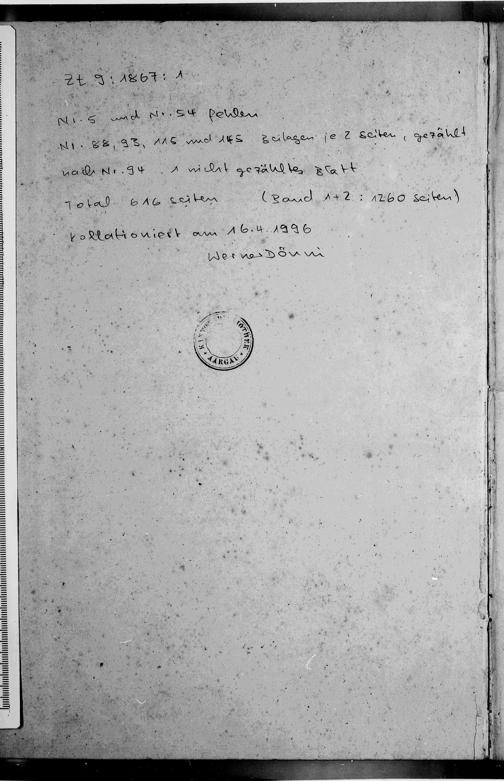 Zt 9 : 1867 : 1
Nr. 5 und Nr. 54 fehlen
Nr. 88, 93, 115 und 145 Beilagen je 2 Seiten, gezählt
nach Nr. 94 1 nicht gezähltes Blatt
Total 616 Seiten (Band 1+2 : 1260 Seiten)
kollationiert am 16.4.1996
Werner Dönni
AARGAU